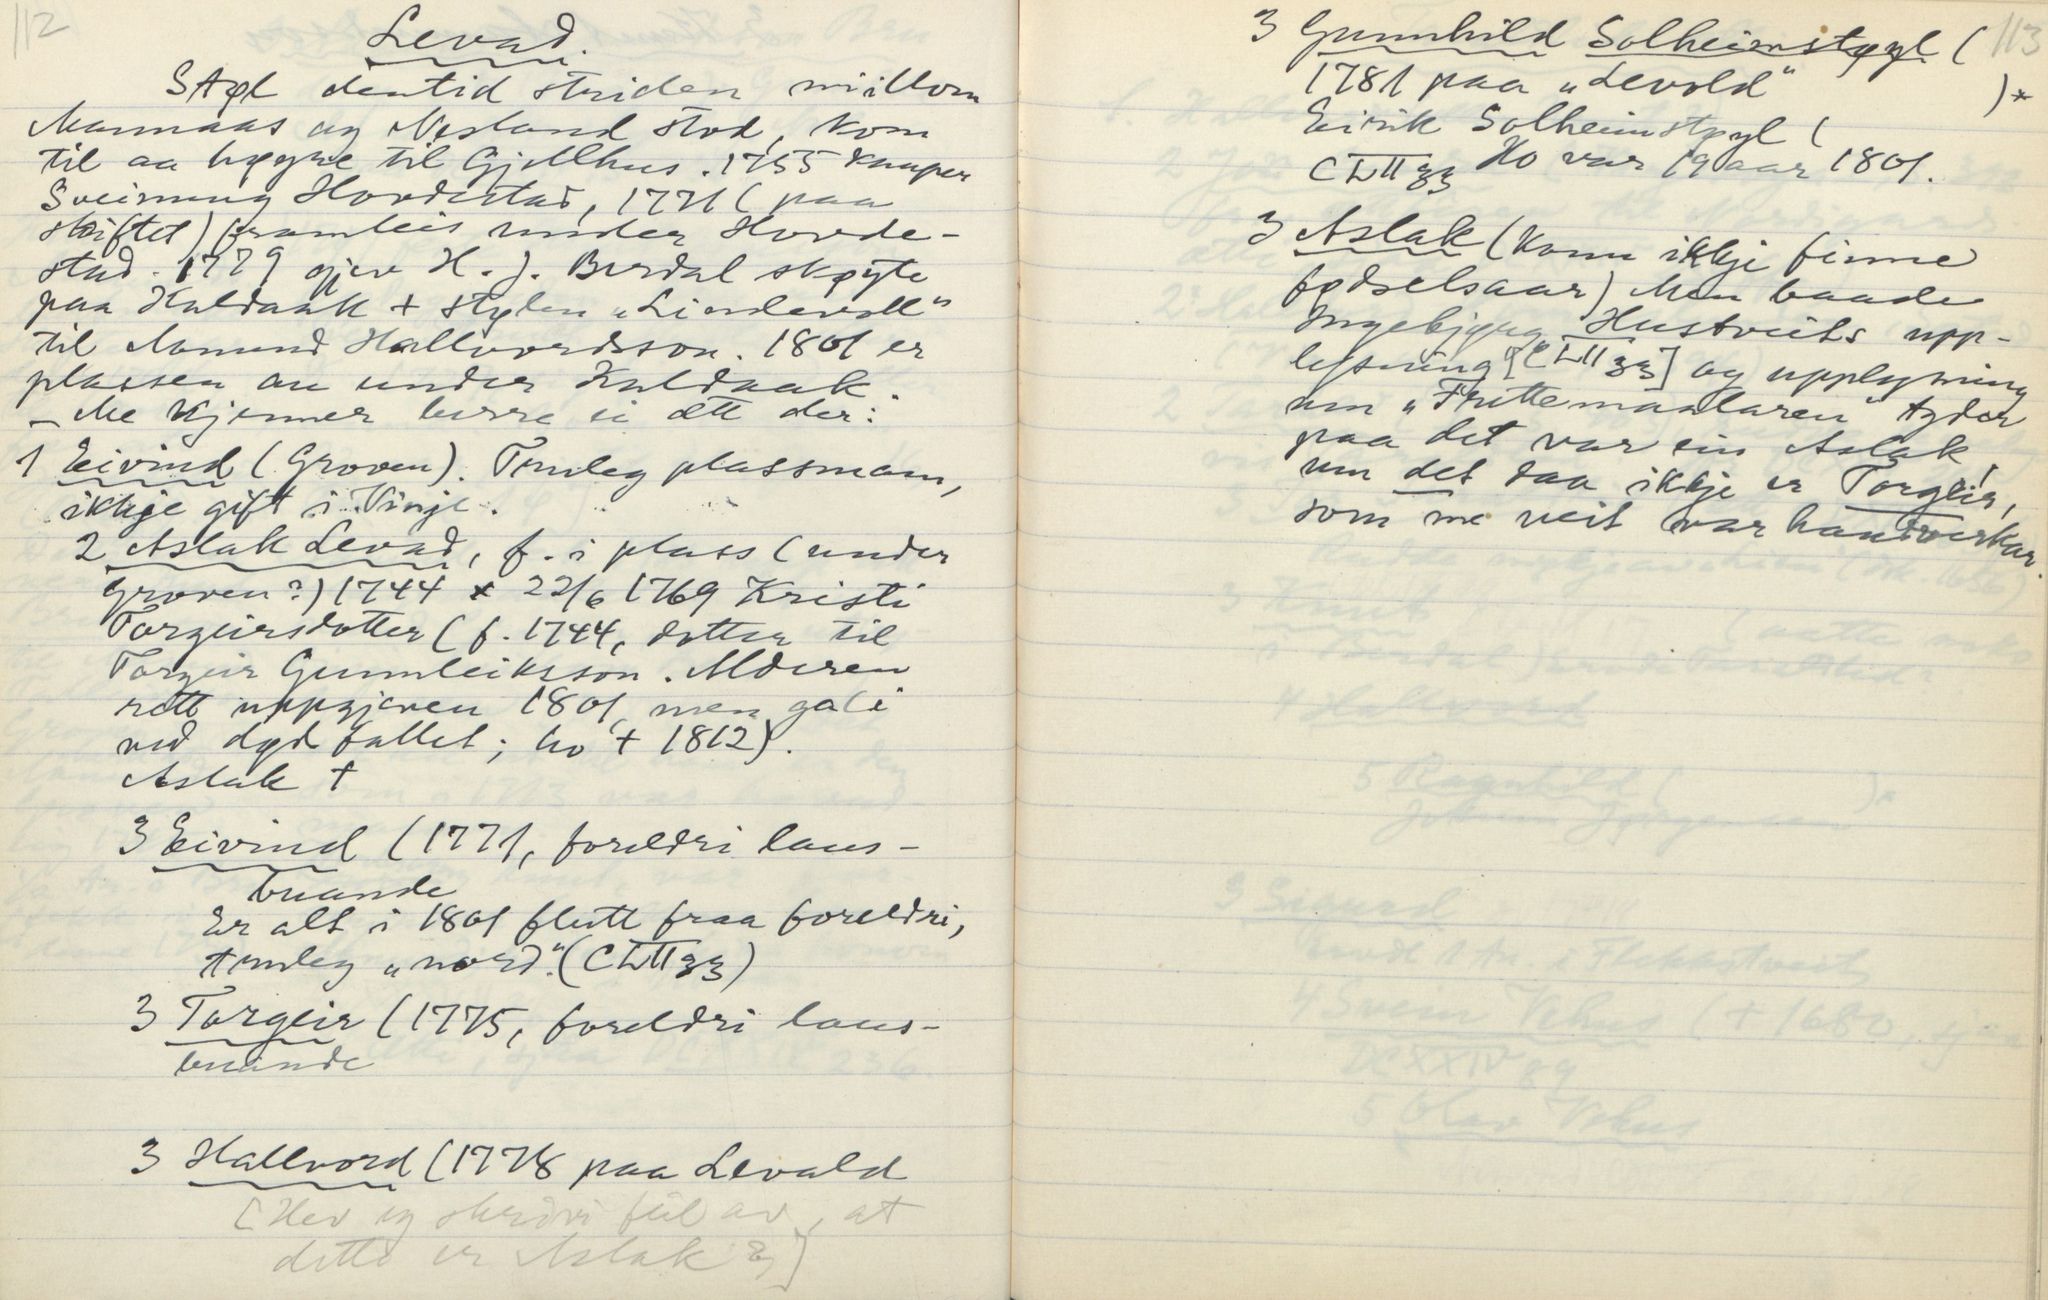 112
Levad.
Støl dentid striden millom
Mannaas og Nesland stod, kom
til aa høyre til Gjellhus. 1755 kauper
Sveinung Hovdestad, 1771 (paa
skiftet) framleis under Hovde-
stad. 1779 gjev H. J. Burdal skøyte
paa Kuldaak + stylen „Lindevoll“
til Aamund Hallvordsson. 1801 er
plassen au under Kuldaak.
– Me kjenner berre ei ætt der:
1 Eivind (Groven). Truleg plassmann,
ikkje gift i Vinje.
2 Aslak Levad, f. i plass (under
Groven?) 1744 x 22/6 1769 Kristi
Torgeirsdotter (f. 1744, dotter til
Torgeir Gunnleiksson. Alderen
rett uppgjeven 1801, men gali
ved dødfallet; ho + 1812).
Aslak +
3 Eivind (1771, foreldri laus-
buande
Er alt i 1801 flutt fraa foreldri,
truleg „nord“. (CLII 33)
3 Torgeir (1775, foreldri laus-
buande
3 Hallvord (1778 paa Levald
[Hev eg skrivi feil av, at
dette er Aslak?]
113
3 Gunnhild Solheimstøyl (
1781 paa „Levold“ )*
Eirik Solheimstøyl (
CLII 33 Ho var 19 aar 1801.
3 Aslak (Kann ikkje finne
fødselsaar) Men baade
Ingebjørg Hustveits upp-
lysning [CLII 33] og upplysning
um „Fruttemaalaren“ tyder
paa det var ein Aslak,
um det daa ikkje er Torgeir,
som me veit var handverkar.